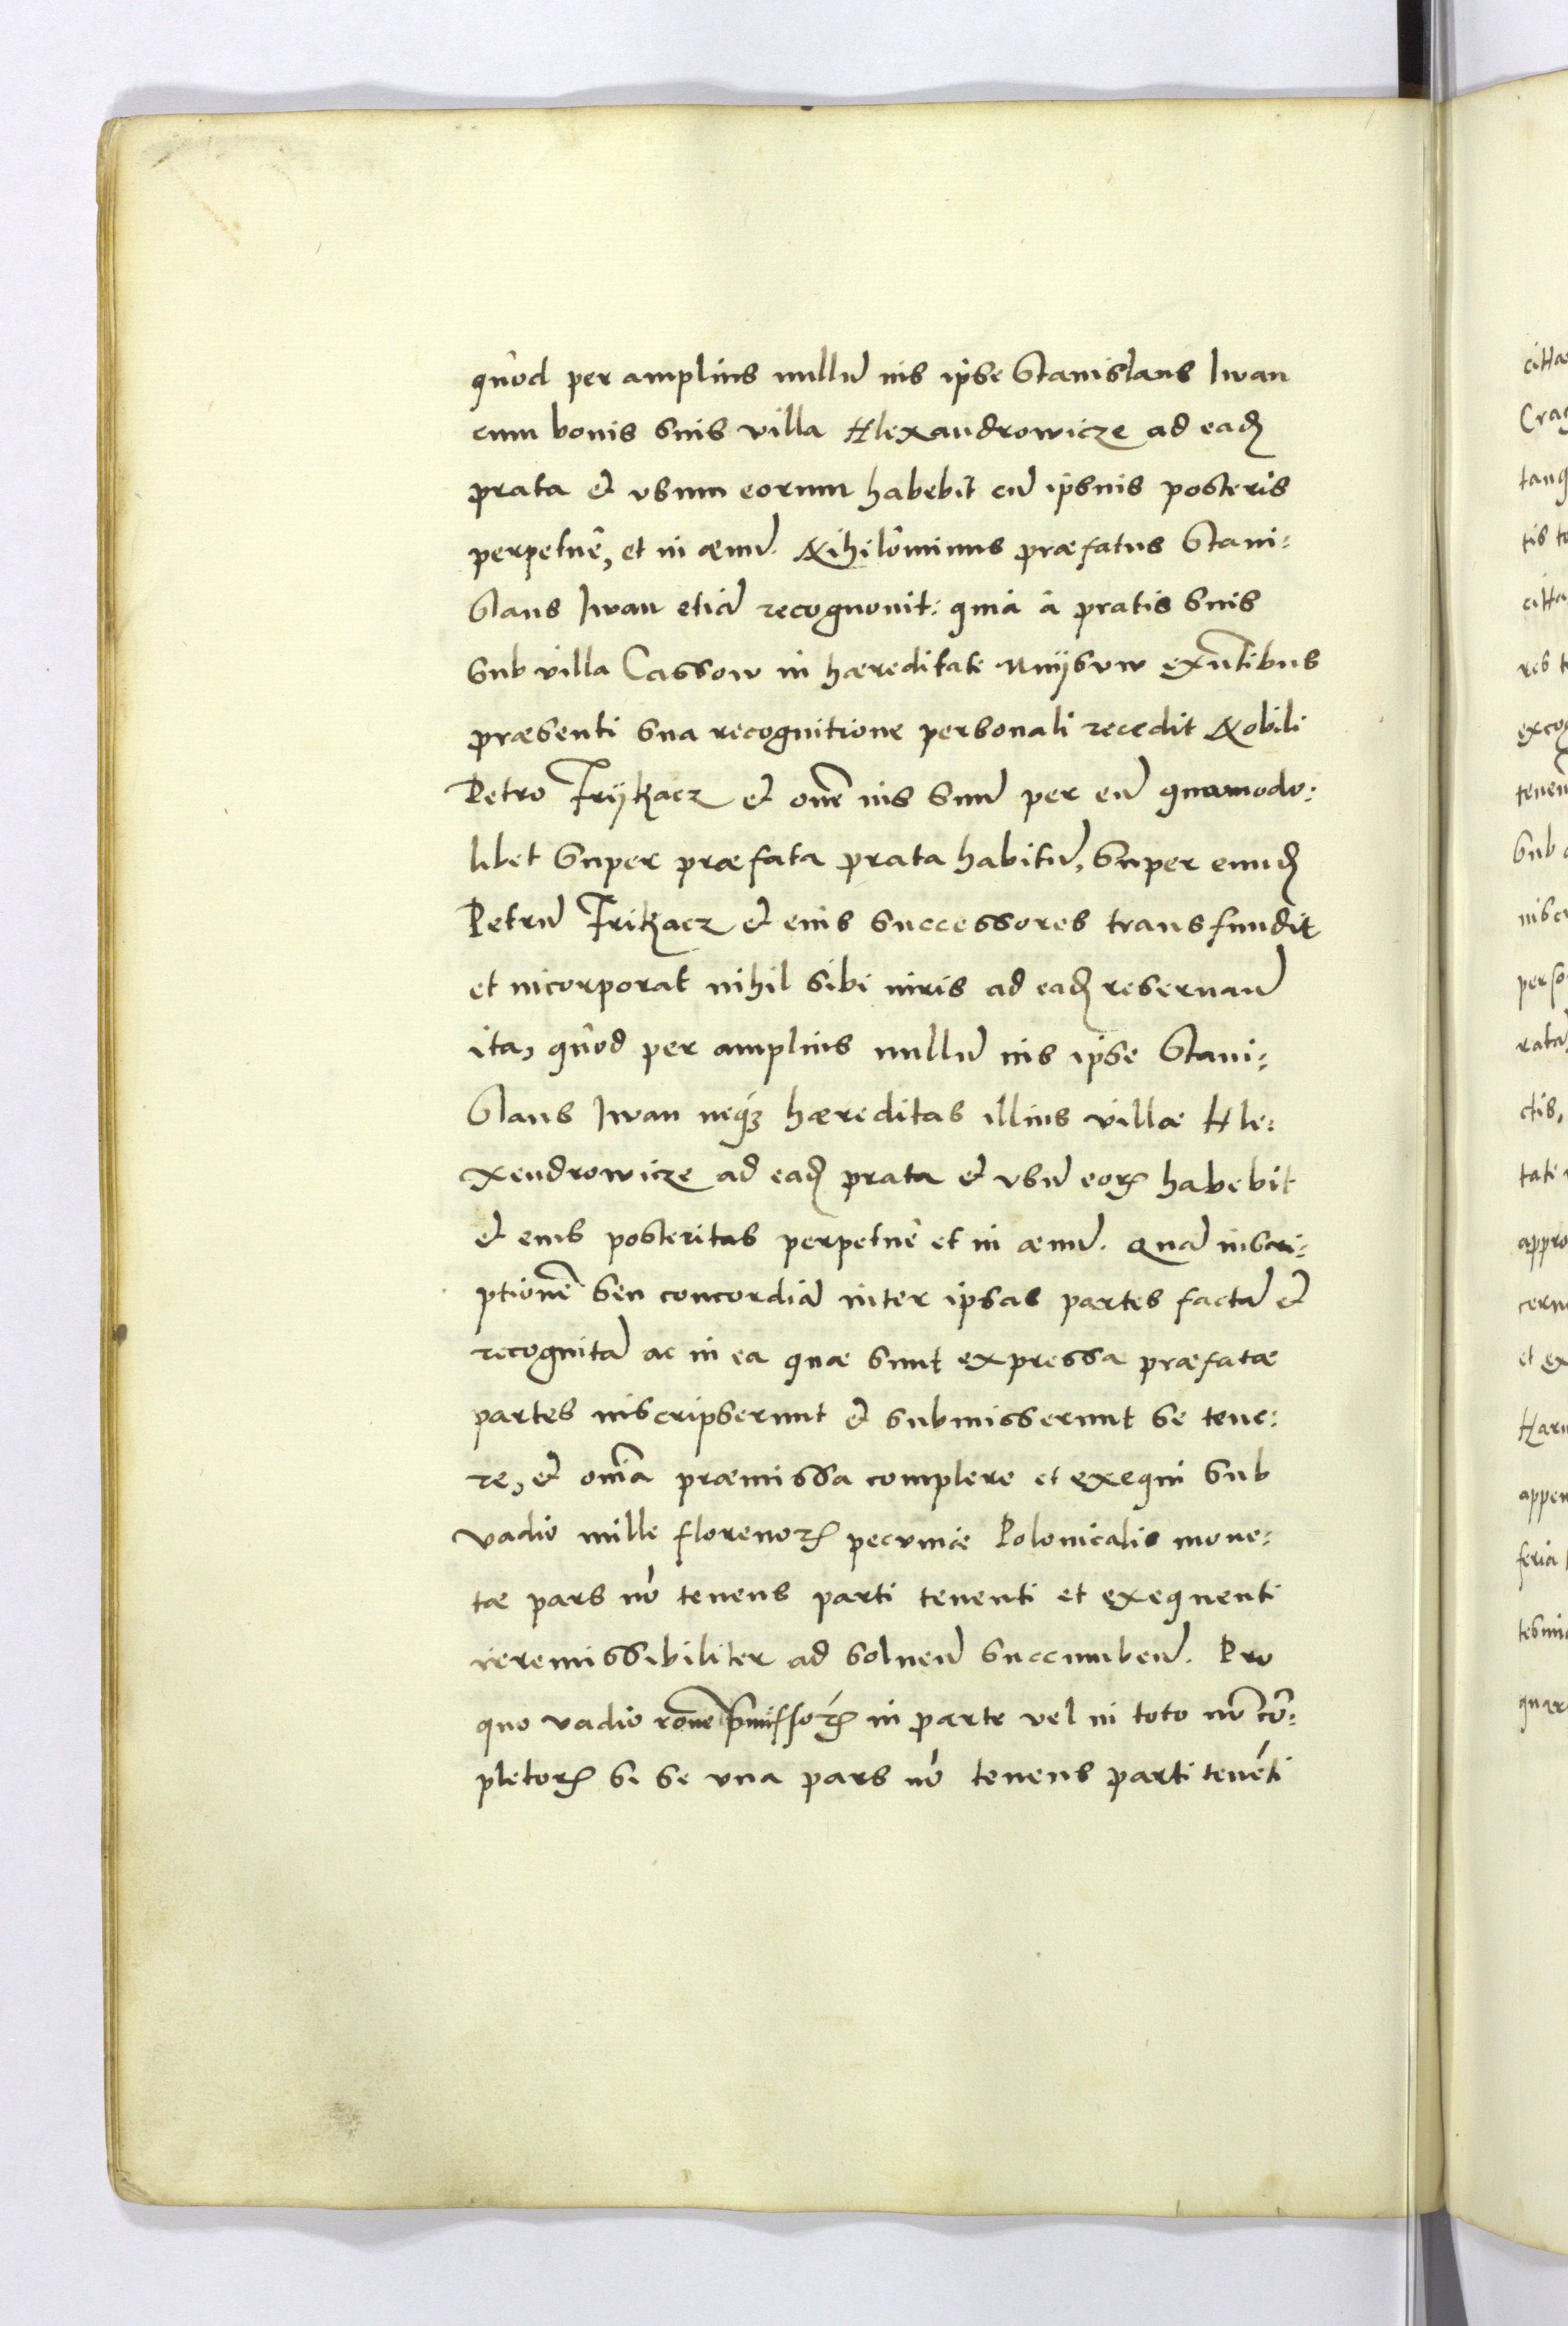 quòd per amplius nullũ ius ipse Stanislaus Iwan
cum bonis suis villa Alexandrowicze ad eadẽ
prata et vsum eorum habebit cũ ipsius posteris
perpetuè, et in æuũ. Nihilòminus præfatus Stani:
slaus Iwan etiã recognouit: quià à pratis suis
sub villa Cassow in hæreditate Nyisuw exũtibus
præsenti sua recognitione personali recedit Nobili
Petro Trijkacz et oм̃e ius suũ per eũ quomodo:
libet super præfata prata habitũ, super eundẽ
Petrũ Trikacz et eius successores transfundit
et incorporat nihil sibi iuris ad eadẽ reseruanđ
ita, quòd per amplius nullũ ius ipse Stani:
slaus Iwan neq́ꝫ hæreditas illius villæ Ale:
xendrowicze ad eadẽ prata et vsũ eoꝝ habebit
et eius posteritas perpetuè et in æuũ. Quã inscri:
ptionẽ seu concordiã inter ipsas partes factã et
recognitã ac in ea quæ sunt expressa præfatæ
partes inscripserunt et submisserunt se tene:
re, et om̃ia præmissa complere et exequi sub
vadio mille florenoꝝ pecuniæ Polonicalis mone:
tæ pars nõ tenens parti tenenti et exequenti
irremissibiliter ad soluenđ succumbenđ. Pro
quo vadio rõne p̃missoꝝ in parte vel in toto nõ cõ:
pletoꝝ si se vna pars nõ tenens parti tenẽti